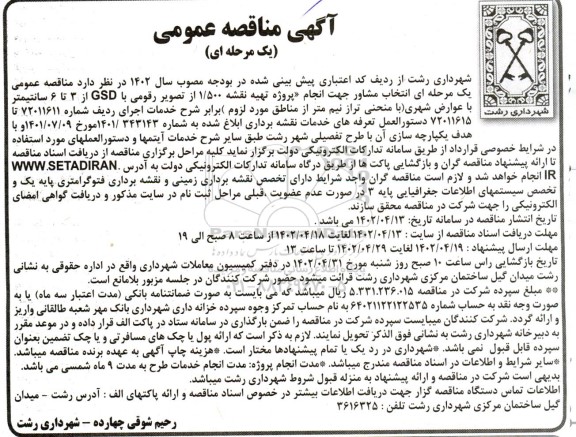 آگهی مناقصه عمومی
(یک مرحله ای)
شهرداری رشت
شهرداری رشت از ردیف کد اعتباری پیش بینی شده در بودجه مصوب سال ۱۴۰۲ در نظر دارد مناقصه عمومی
یک مرحله ای انتخاب مشاور جهت انجام «پروژه تهیه نقشه ۱/۵۰۰ از تصویر رقومی با GSD از ۳ تا ۶ سانتیمتر
با عوارض شهری(با منحنی تراز نیم متر از مناطق مورد لزوم )برابر شرح خدمات اجرای ردیف شماره ۷۲۰۱۱۶۱۱ تا
۷۲۰۱۱۶۱۵ دستورالعمل تعرفه های خدمات نقشه برداری ابلاغ شده به شماره ۱۴۰۱/ ۳۴۳۱۴۳مورخ ۱۴۰۱/۰۷/۰۹و با
هدف یکپارچه سازی آن با طرح تفصیلی شهر رشت طبق سایر شرح خدمات آیتمها و دستورالعملهای مورد استفاده
در شرایط خصوصی قرارداد از طریق سامانه تدارکات الکترونیکی دولت برگزار نماید کلیه مراحل برگزاری مناقصه از دریافت اسناد مناقصه
تا ارائه پیشنهاد مناقصه گران و بازگشایی پاکت ها از طریق درگاه سامانه تدارکات الکترونیکی دولت به آدرس WWW.SETADIRAN.
IR انجام خواهد شد و لازم است مناقصه گران واجد شرایط دارای تخصص نقشه برداری زمینی و نقشه برداری فتوگرامتری پایه یک و
تخصص سیستمهای اطلاعات جغرافیایی پایه ۳ در صورت عدم عضویت ،قبلی مراحل ثبت نام در سایت مذکور و دریافت گواهی امضای
الکترونیکی را جهت شرکت در مناقصه محقق سازند.
تاریخ انتشار مناقصه در سامانه تاریخ: ۱۴۰۲/۰۴/۱۳ می باشد .
مهلت دریافت اسناد مناقصه از سایت : ۱۴۰۲/۰۴/۱۳لغایت ۱۴۰۲/۰۴/۱۸ از ساعت ۸ صبح الی ۱۹
مهلت ارسال پیشنهاد : ۱۴۰۲/۰۴/۱۹ لغایت ۱۴۰۲/۰۴/۲۹ تا ساعت ۱۳
تاریخ بازگشایی راس ساعت ۱۰ صبح روز شنبه مورخ ۱۴۰۲/۰۴/۳۱ در دفتر کمیسیون معاملات شهرداری واقع در اداره حقوقی به نشانی
رشت میدان گیل ساختمان مرکزی شهرداری رشت قرائت میشود حضور شرکت کنندگان در جلسه مزبور بلامانع است.
** مبلغ سپرده شرکت در مناقصه ۵.۳۳۱.۲۳۶.۰۱۵ ریال میباشد که می بایست به صورت ضمانتنامه بانکی (مدت اعتبار سه ماه) یا به
صورت وجه نقد به حساب شماره ۶۴۰۲۱۱۲۲۱۲۲۵۳۵ به نام حساب تمرکز وجوه سپرده خزانه داری شهرداری بانک مهر شعبه طالقانی واریز
و ارائه گردد. شرکت کنندگان میبایست سپرده شرکت در مناقصه را ضمن بارگذاری در سامانه ستاد در پاکت الف قرار داده و در موعد مقرر
به دبیرخانه شهرداری رشت به نشانی فوق الذکر تحویل نمایند. لازم به ذکر است که ارائه پول یا چک های مسافرتی و یا چک تضمین بعنوان
سپرده قابل قبول نمی باشد. *شهرداری در رد یک یا تمام پیشنهادها مختار است. *هزینه چاپ آگهی به عهده برنده مناقصه میباشد.
*سایر شرایط و اطلاعات در اسناد مناقصه مندرج میباشد. *مدت انجام پروژه: مدت انجام خدمات طرح به مدت ۹ ماه شمسی می باشد.
بدیهی است شرکت در مناقصه و ارائه پیشنهاد به منزله قبول شروط شهرداری رشت میباشد.
اطلاعات تماس دستگاه مناقصه گزار جهت دریافت اطلاعات بیشتر در خصوص اسناد مناقصه و ارائه پاکتهای الف : آدرس رشت - میدان
گیل ساختمان مرکزی شهرداری رشت تلفن : ۳۶۱۶۳۲۵
رحیم شوقی چهارده - شهرداری رشت